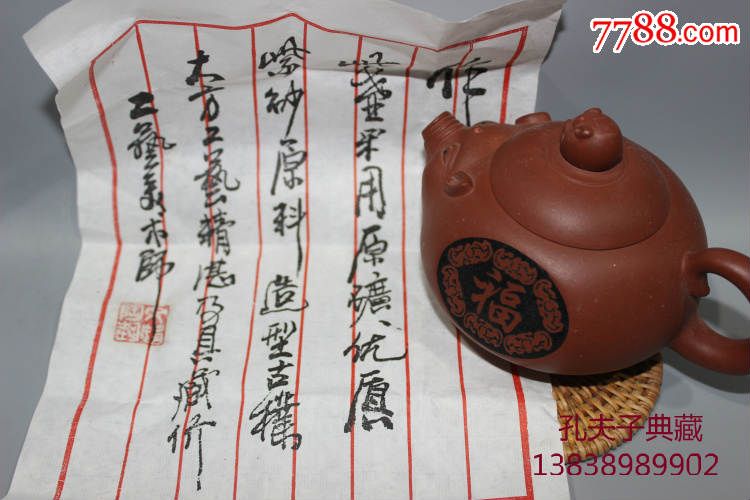 7788.com
作
此壶采用原矿优质
紫砂原料造型古樸
大方工藝精湛乃具藏价
工藝美术師
福
孔夫子典藏
13838989902